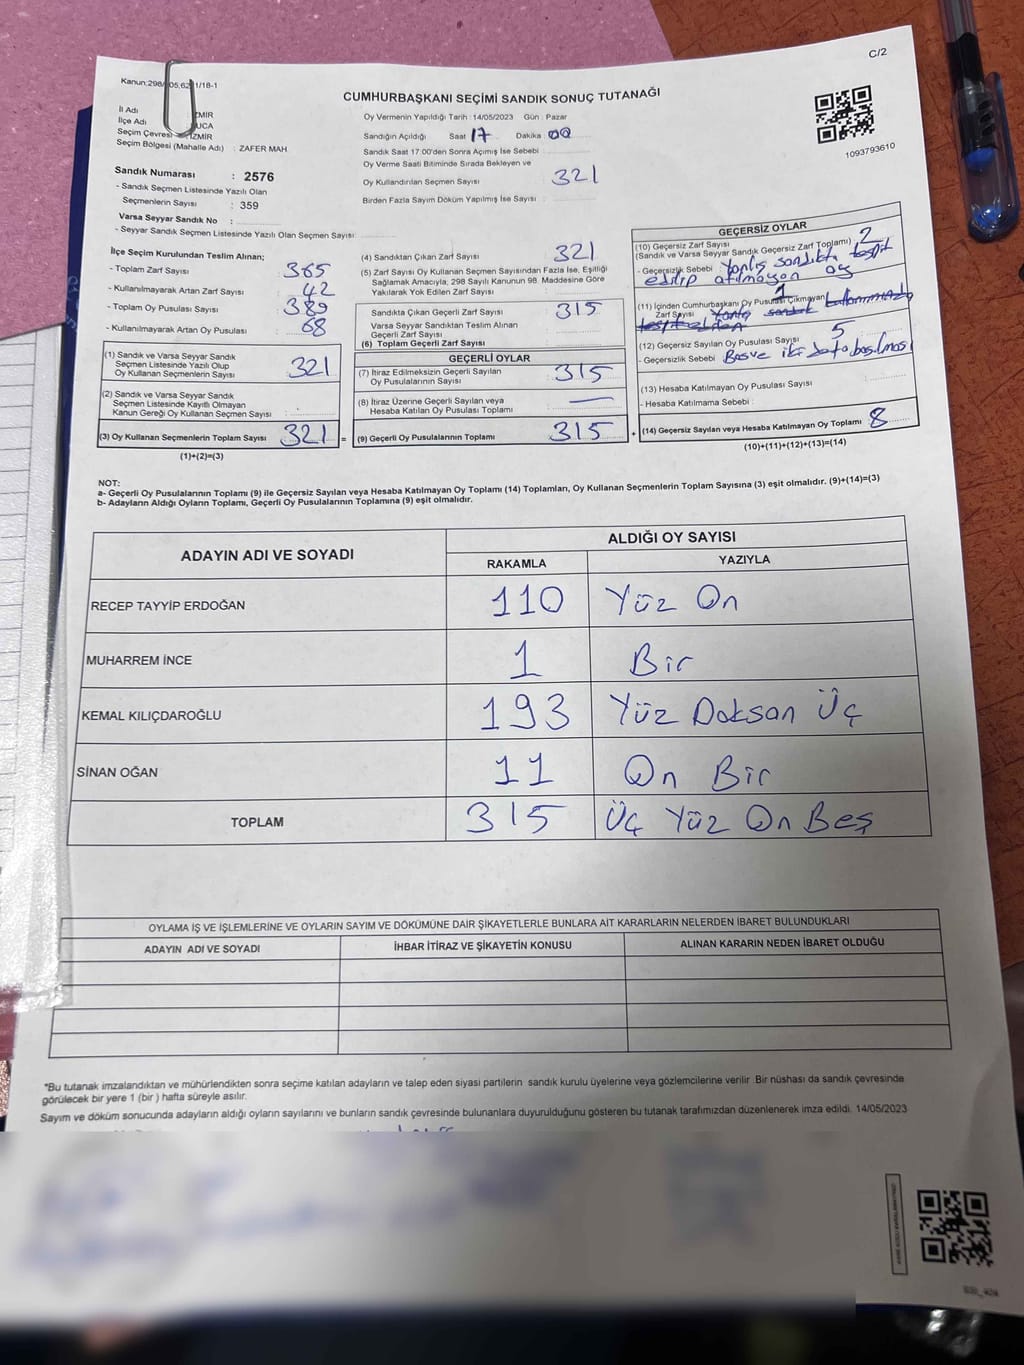 C/2
Kanun:298/105,62 1/18-1
CUMHURBAŞKANI SEÇİMİ SANDIK SONUÇ TUTANAĞI
1093793610
İl Adı İZMİR
İlçe Adı BUCA
Seçim Çevresi İZMİR
Seçim Bölgesi (Mahalle Adı) : ZAFER MAH.
Sandık Numarası : 2576
- Sandık Seçmen Listesinde Yazılı Olan
Seçmenlerin Sayısı : 359
Varsa Seyyar Sandık No :
- Seyyar Sandık Seçmen Listesinde Yazılı Olan Seçmen Sayısı:
Oy Vermenin Yapıldığı Tarih : 14/05/2023 Gün : Pazar
Sandığın Açıldığı Saat 17 Dakika : 00
Sandık Saat 17:00'den Sonra Açımış İse Sebebi
Oy Verme Saati Bitiminde Sırada Bekleyen ve
Oy Kullandırılan Seçmen Sayısı : 321
Birden Fazla Sayım Döküm Yapılmış İse Sayısı :
İlçe Seçim Kurulundan Teslim Alınan;
- Toplam Zarf Sayısı : 365
- Kullanılmayarak Artan Zarf Sayısı : 42
- Toplam Oy Pusulası Sayısı : 389
- Kullanılmayarak Artan Oy Pusulası : 68
(1) Sandık ve Varsa Seyyar Sandık
Seçmen Listesinde Yazılı Olup
Oy Kullanan Seçmenlerin Sayısı : 321
(2) Sandık ve Varsa Seyyar Sandık
Seçmen Listesinde Kayıtlı Olmayan
Kanun Gereği Oy Kullanan Seçmen Sayısı :
(3) Oy Kullanan Seçmenlerin Toplam Sayısı : 321 =
(1)+(2)=(3)
(4) Sandıktan Çıkan Zarf Sayısı : 321
(5) Zarf Sayısı Oy Kullanan Seçmen Sayısından Fazla İse, Eşitliği
Sağlamak Amacıyla; 298 Sayılı Kanunun 98. Maddesine Göre
Yakılarak Yok Edilen Zarf Sayısı :
Sandıkta Çıkan Geçerli Zarf Sayısı : 315
Varsa Seyyar Sandıktan Teslim Alınan
Geçerli Zarf Sayısı :
(6) Toplam Geçerli Zarf Sayısı :
GEÇERLİ OYLAR
(7) İtiraz Edilmeksizin Geçerli Sayılan
Oy Pusulalarının Sayısı : 315
(8) İtiraz Üzerine Geçerli Sayılan veya
Hesaba Katılan Oy Pusulası Toplamı : —
(9) Geçerli Oy Pusulalarının Toplamı : 315 +
GEÇERSİZ OYLAR
(10) Geçersiz Zarf Sayısı
(Sandık ve Varsa Seyyar Sandık Geçersiz Zarf Toplamı) : 2
- Geçersizlik Sebebi : Yanlış sandıkta tespit
edilip atılmayan oy
(11) İçinden Cumhurbaşkanı Oy Pusulası Çıkmayan
Zarf Sayısı : 1
(12) Geçersiz Sayılan Oy Pusulası Sayısı : 5
- Geçersizlik Sebebi : Boş ve iki defa basılması
(13) Hesaba Katılmayan Oy Pusulası Sayısı :
- Hesaba Katılmama Sebebi :
(14) Geçersiz Sayılan veya Hesaba Katılmayan Oy Toplamı : 8
(10)+(11)+(12)+(13)=(14)
NOT:
a- Geçerli Oy Pusulalarının Toplamı (9) ile Geçersiz Sayılan veya Hesaba Katılmayan Oy Toplamı (14) Toplamları, Oy Kullanan Seçmenlerin Toplam Sayısına (3) eşit olmalıdır. (9)+(14)=(3)
b- Adayların Aldığı Oyların Toplamı, Geçerli Oy Pusulalarının Toplamına (9) eşit olmalıdır.
ADAYIN ADI VE SOYADI
ALDIĞI OY SAYISI
RAKAMLA YAZIYLA
RECEP TAYYİP ERDOĞAN 110 Yüz On
MUHARREM İNCE 1 Bir
KEMAL KILIÇDAROĞLU 193 Yüz Doksan Üç
SİNAN OĞAN 11 On Bir
TOPLAM 315 Üç Yüz On Beş
OYLAMA İŞ VE İŞLEMLERİNE VE OYLARIN SAYIM VE DÖKÜMÜNE DAİR ŞİKAYETLERLE BUNLARA AİT KARARLARIN NELERDEN İBARET BULUNDUKLARI
ADAYIN ADI VE SOYADI İHBAR İTİRAZ VE ŞİKAYETİN KONUSU ALINAN KARARIN NEDEN İBARET OLDUĞU
"Bu tutanak imzalandıktan ve mühürlendikten sonra seçime katılan adayların ve talep eden siyasi partilerin sandık kurulu üyelerine veya gözlemcilerine verilir .Bir nüshası da sandık çevresinde
görülecek bir yere 1 (bir ) hafta süreyle asılır.
Sayım ve döküm sonucunda adayların aldığı oyların sayılarını ve bunların sandık çevresinde bulunanlara duyurulduğunu gösteren bu tutanak tarafımızdan düzenlenerek imza edildi. 14/05/2023